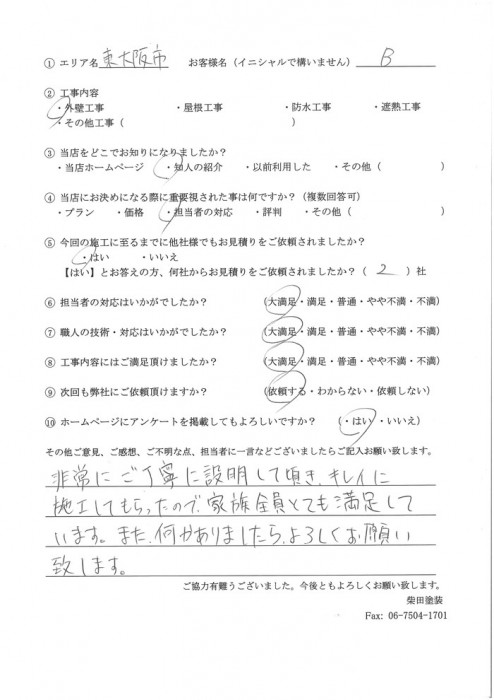 ① エリア名 東大阪市 お客様名(イニシャルで構いません) B
② 工事内容
・外壁工事 ・屋根工事 ・防水工事 ・遮熱工事
・その他工事( )
③ 当店をどこでお知りになりましたか?
・当店ホームページ ・知人の紹介 ・以前利用した ・その他( )
④ 当店にお決めになる際に重要視された事は何ですか?(複数回答可)
・プラン ・価格 ・担当者の対応 ・評判 ・その他( )
⑤ 今回の施工に至るまでに他社様でもお見積りをご依頼されましたか?
・はい ・いいえ
【はい】とお答えの方、何社からお見積りをご依頼されましたか?( 2 )社
⑥ 担当者の対応はいかがでしたか? (大満足・満足・普通・やや不満・不満)
⑦ 職人の技術・対応はいかがでしたか? (大満足・満足・普通・やや不満・不満)
⑧ 工事内容にはご満足頂けましたか? (大満足・満足・普通・やや不満・不満)
⑨ 次回も弊社にご依頼頂けますか? (依頼する・わからない・依頼しない)
⑩ ホームページにアンケートを掲載してもよろしいですか? (・はい・いいえ)
その他ご意見、ご感想、ご不明な点、担当者に一言などございましたらご記入お願い致します。
非常にご丁寧に説明して頂き、キレイに
施工してもらったので、家族全員とても満足して
います。また、何かありましたら、よろしくお願い
致します。
ご協力有難うございました。今後ともよろしくお願い致します。
柴田塗装
Fax: 06-7504-1701